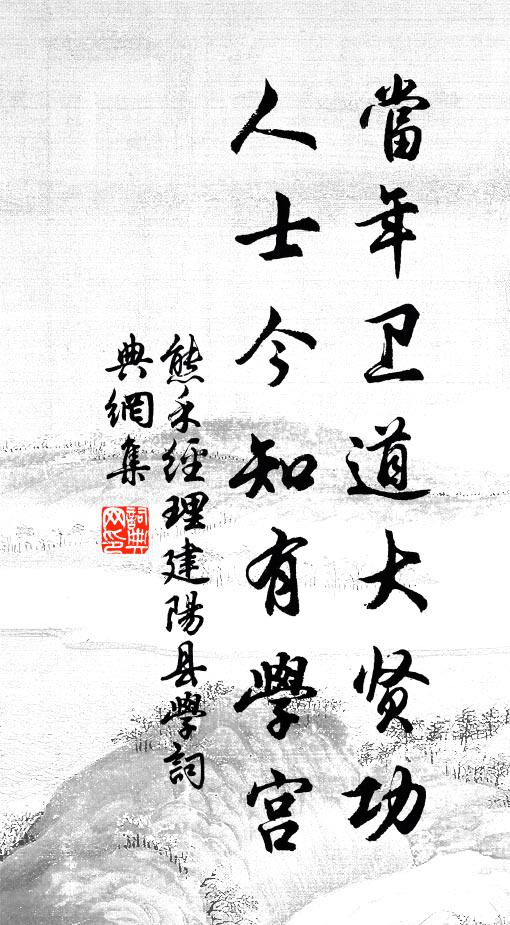 當年卫道大贤功
人士今知有學宫
熊禾經理建陽县學詞
典網集
詞典网印